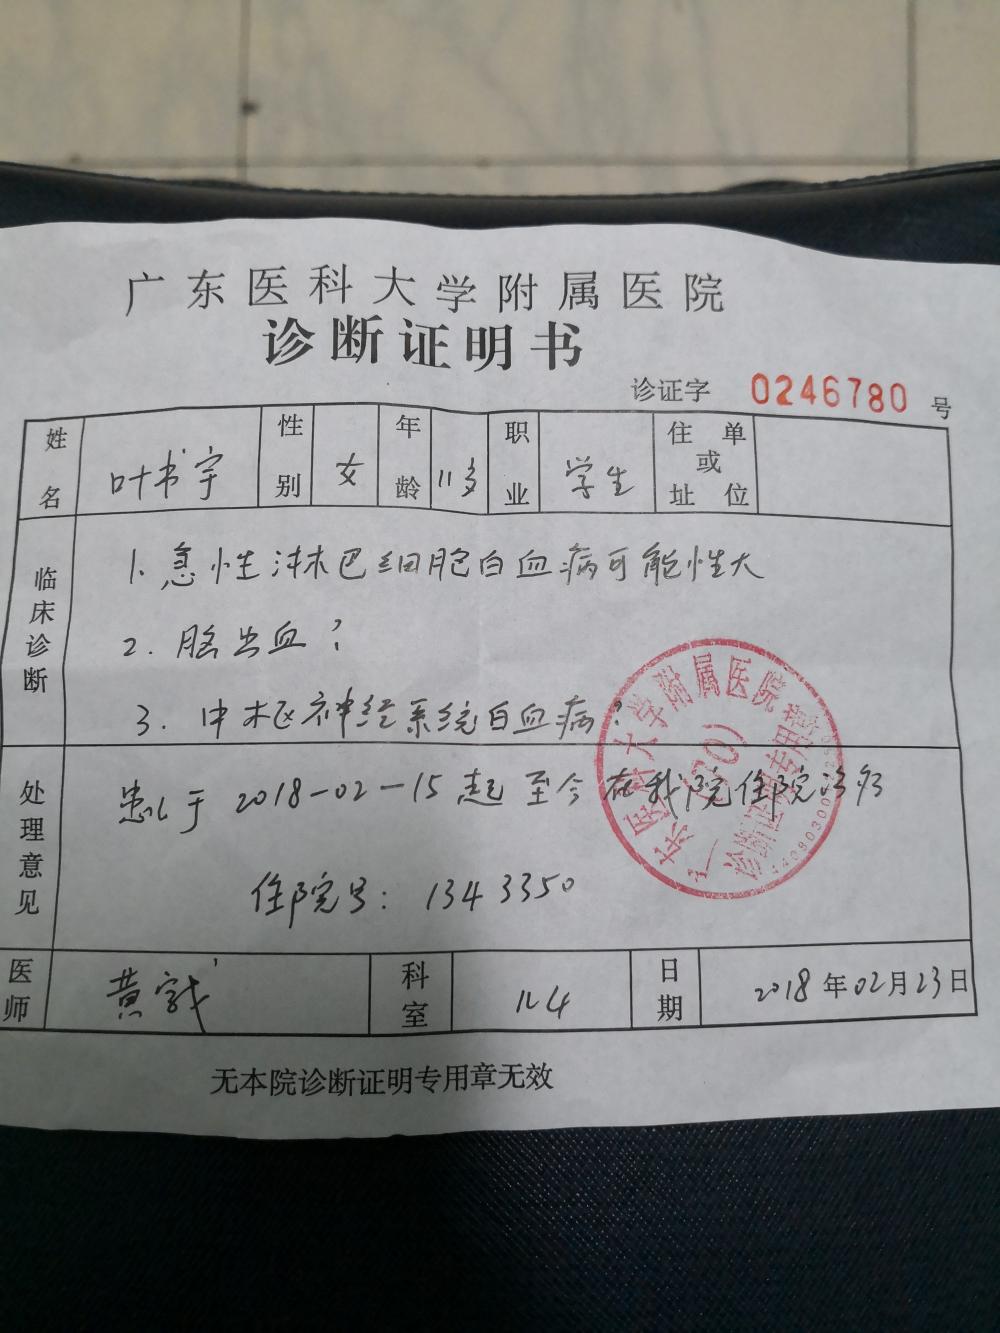 广东医科大学附属医院
诊断证明书
诊证字 0246780 号
姓名 叶书宇 性别 女 年龄 11岁 职业 学生 住址或单位
临床诊断
1. 急性淋巴细胞白血病可能性大
2. 脑出血?
3. 中枢神经系统白血病?
处理意见
患儿于2018-02-15起至今在我院住院治疗
住院号: 1343350
医师 黄 科室 儿4 日期 2018年02月23日
无本院诊断证明专用章无效
广东医科大学附属医院
诊断证明专用章